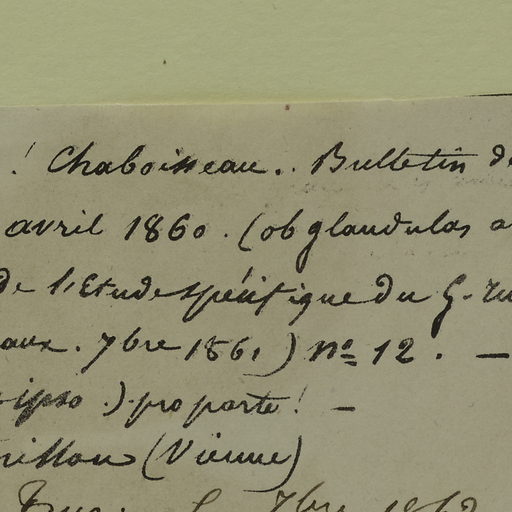 ! Chaboisseau.. Bulletin de
avril 1860. (ob glandulas a
de l'Etude spécifique du G. Ru
aux. 7bre 1861) nº 12. —
ipso.) pro parte! —
(Vienne)
7bre